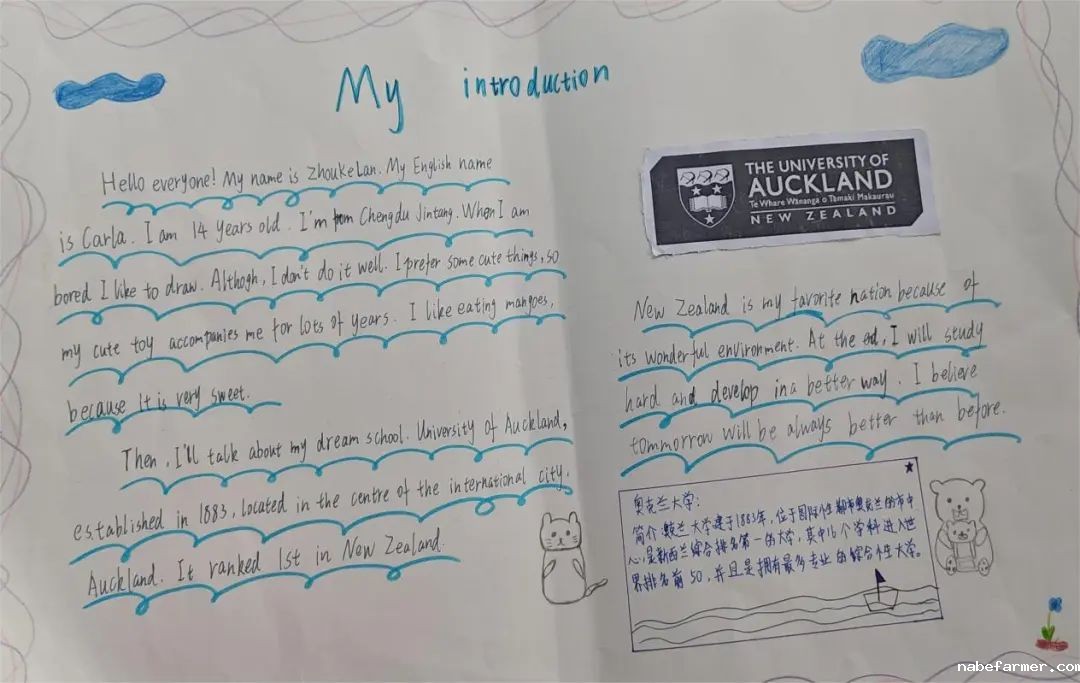 My introduction
Hello everyone! My name is ZhoukeLan. My English name
is Carla. I am 14 years old. I'm from Chengdu Jintang. When I am
bored I like to draw. Althogh, I don't do it well. I prefer some cute things, so
my cute toy accompanies me for lots of years. I like eating mangoes,
because it is very sweet.
Then, I'll talk about my dream school. University of Auckland,
established in 1883, located in the centre of the international city.
Auckland. It ranked 1st in New Zealand.
THE UNIVERSITY OF
AUCKLAND
Te Whare Wānanga o Tāmaki Makaurau
NEW ZEALAND
New Zealand is my favorite nation because of
its wonderful environment. At the end, I will study
hard and develop in a better way. I believe
tommorrow will be always better than before.
奥克兰大学:
简介:奥克兰大学建于1883年,位于国际性都市奥克兰的市中
心,是新西兰综合排名第一的大学,其中16个学科进入世
界排名前50,并且是拥有最多专业的综合性大学。
nabefarmer.com